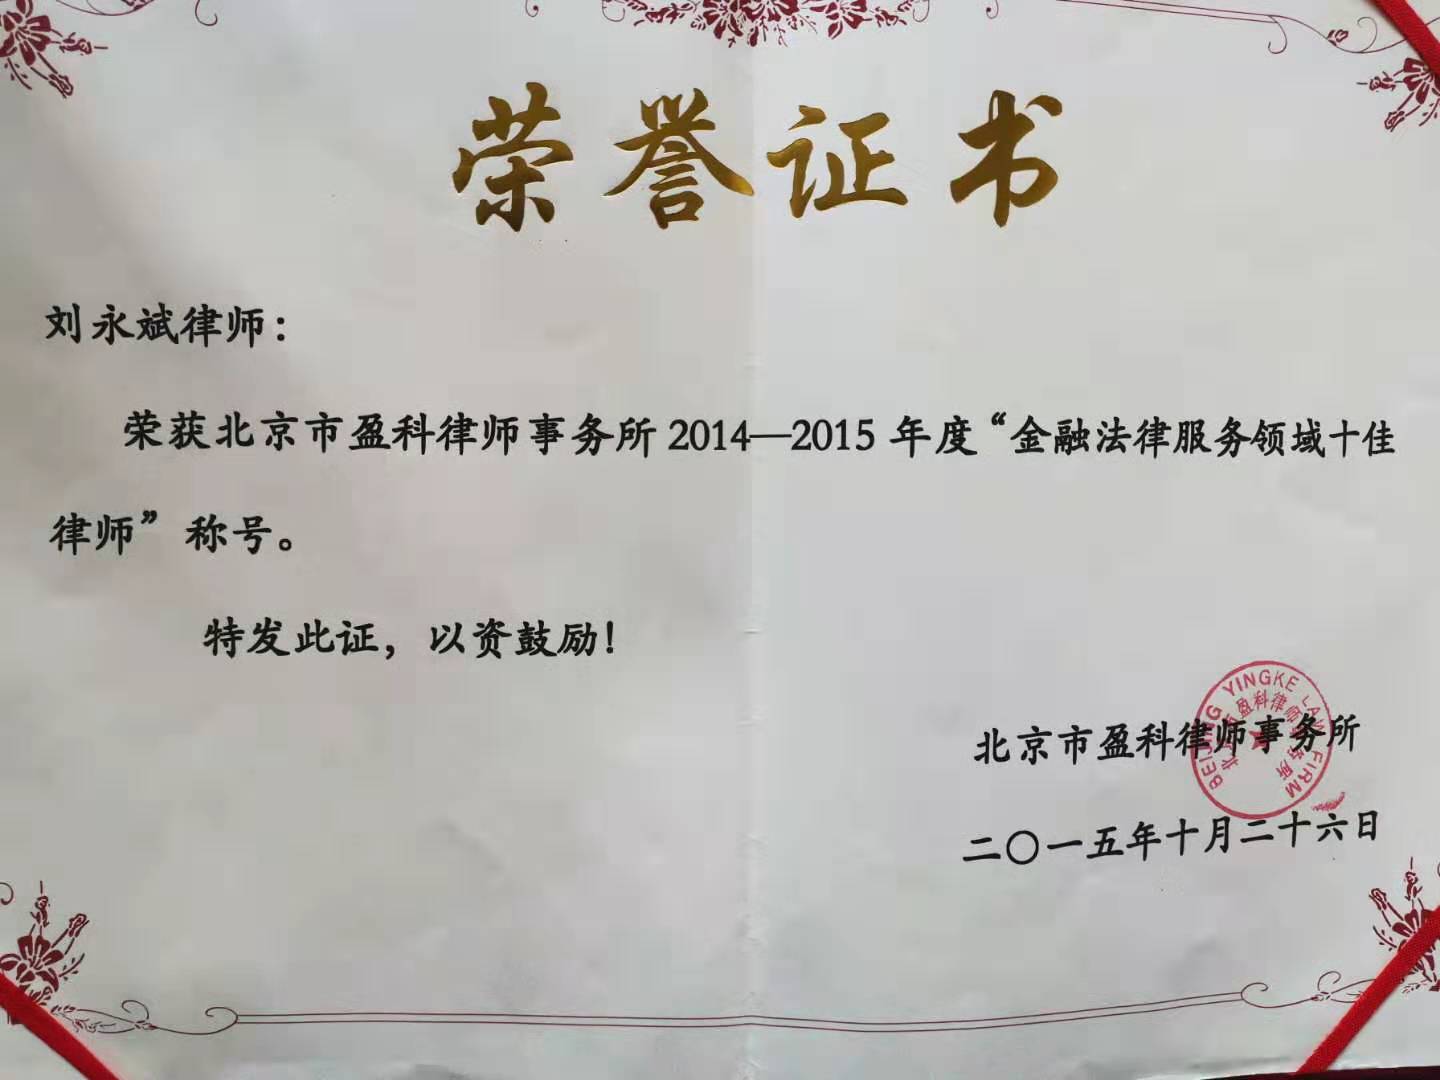 荣誉证书
刘永斌律师：
荣获北京市盈科律师事务所2014—2015年度“金融法律服务领域十佳
律师”称号。
特发此证，以资鼓励！
北京市盈科律师事务所
二〇一五年十月二十六日
BEIJING YINGKE LAW FIRM
北京市盈科律师事务所